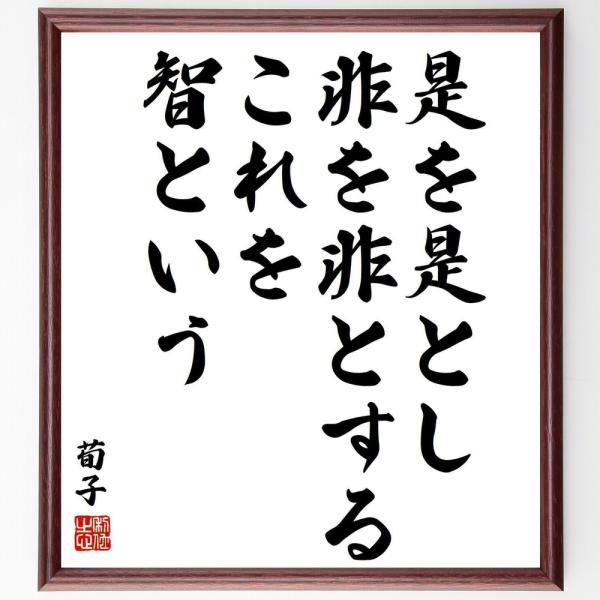 是を是とし
非を非とする
これを
智という
荀子